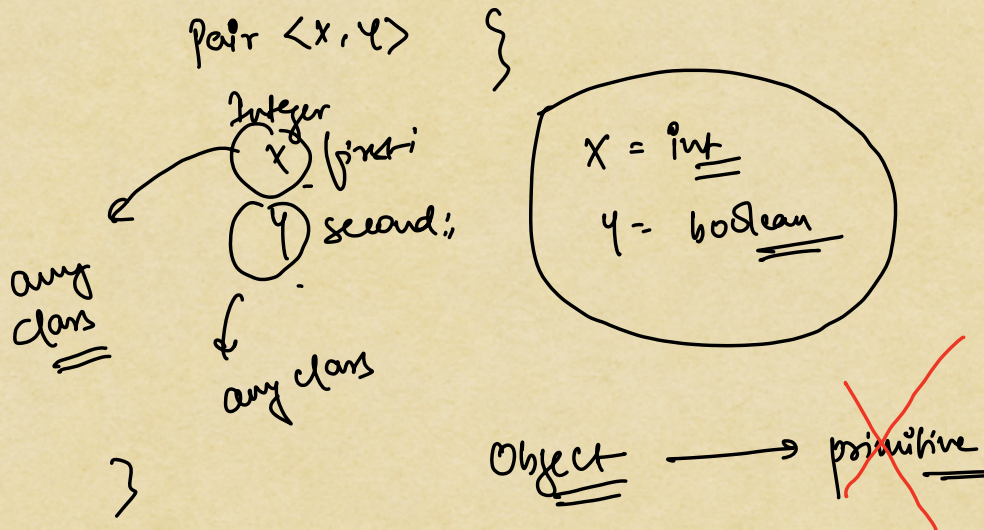 Pair <X, Y> {
Integer
X first;
Y second;
any
class
any class
X = int
Y = boolean
Object → primitive
}